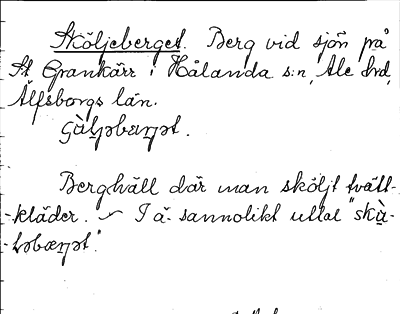 Sköljeberget. Berg vid sjön på
St. Grankärr i Hålanda s:n, Ale hrd,
Älfsborgs län.
Berghäll där man sköljt tvätt-
-kläder. – I ä sannolikt uttal "skà-